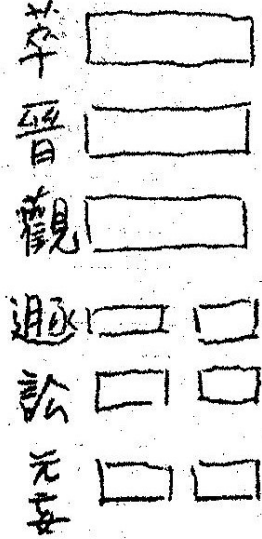 萃
晉
觀
遯
訟
无妄